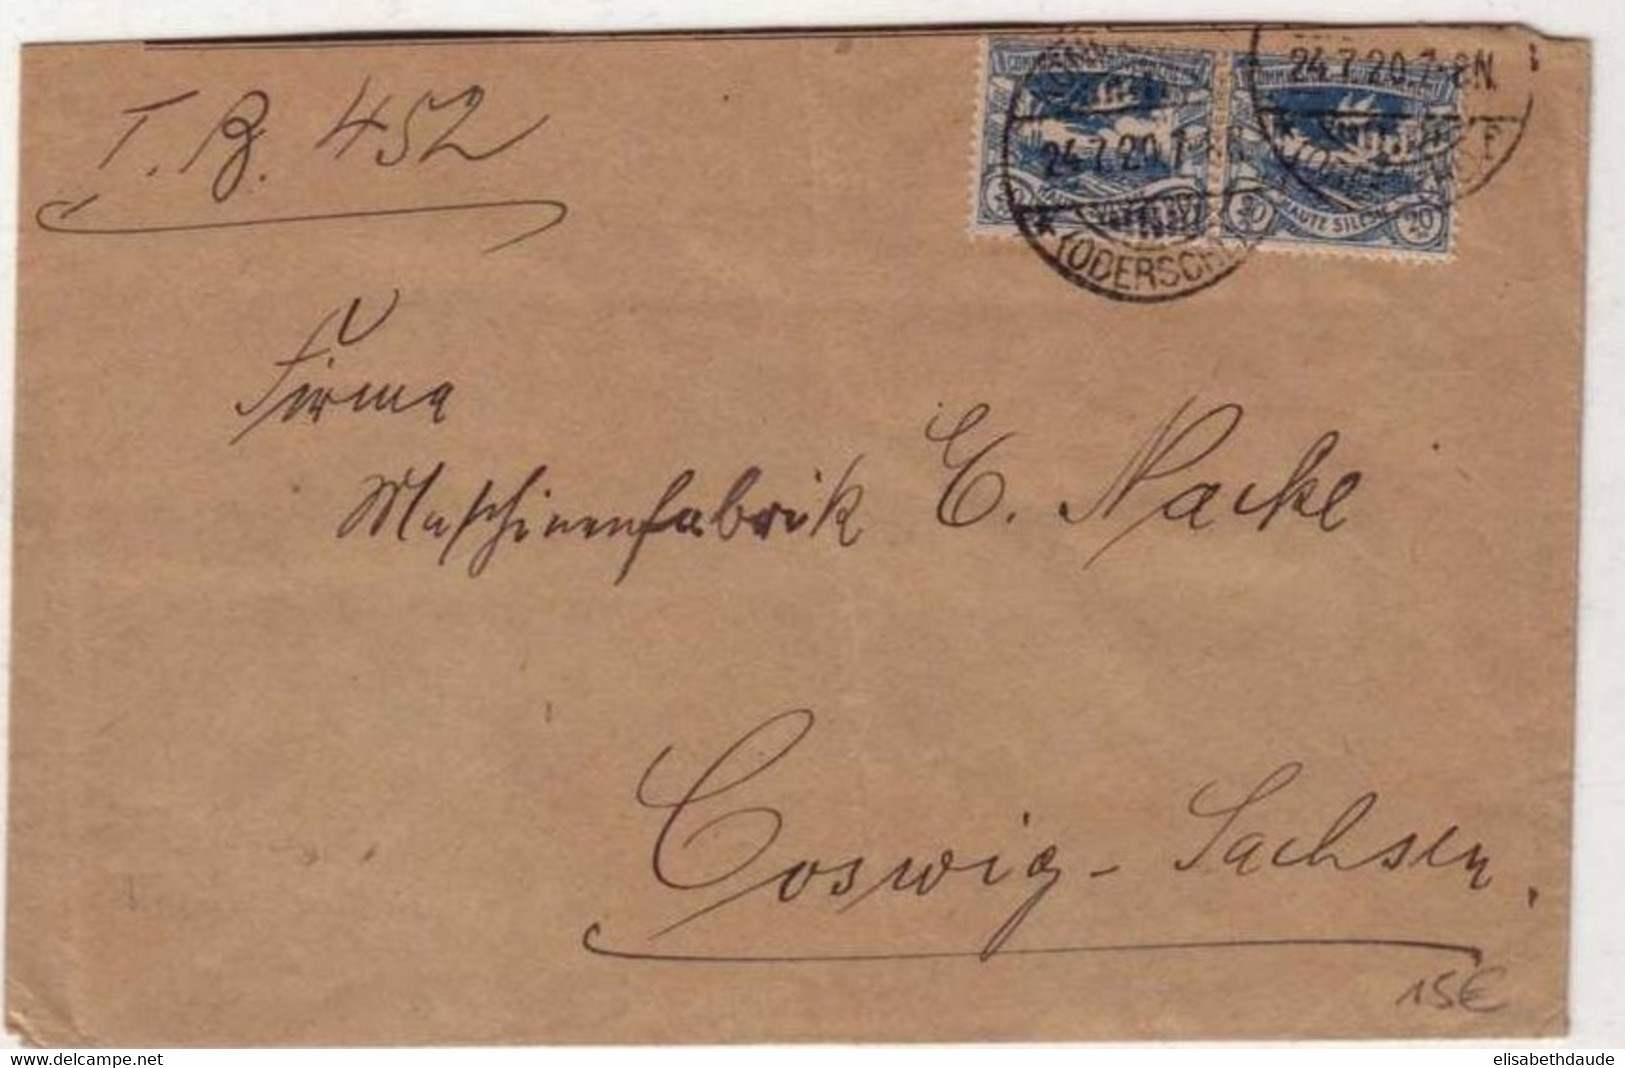 T. B. 452
24.7.20.7-8N.
24.7.20.7-8N
HAUTE SILESIE
20 20
(ODERSCHL
Firma
Maschinenfabrik E. Nacke
Coswig - Sachsen.
15€
elisabethdaude